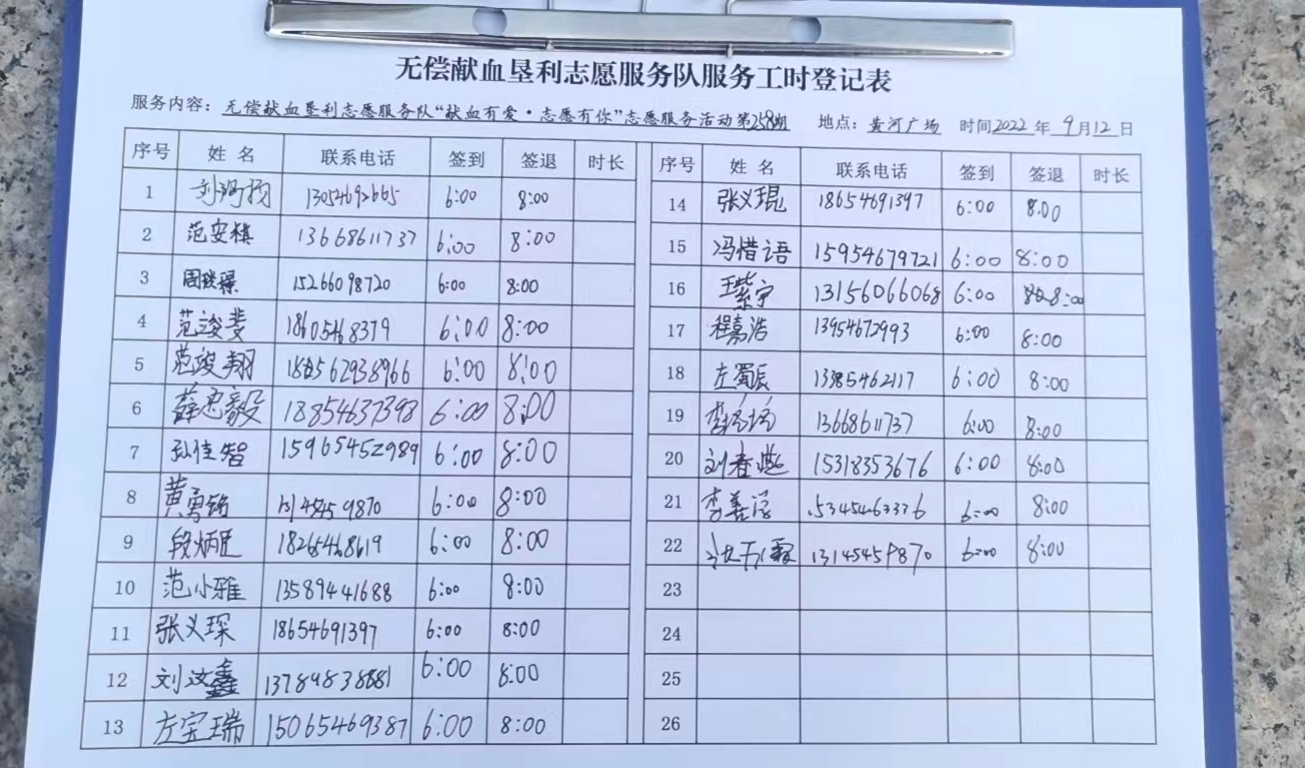 无偿献血垦利志愿服务队服务工时登记表
服务内容：无偿献血垦利志愿服务队“献血有爱·志愿有你”志愿服务活动第258期 地点：黄河广场 时间2022年9月12日
序号 姓名 联系电话 签到 签退 时长
1 6:00 8:00
2 范安棋 13668611737 6:00 8:00
3 15266098720 6:00 8:00
4 范竣斐 18605468379 6:00 8:00
5 范竣翔 6:00 8:00
6 薛忠毅 18854637398 6:00 8:00
7 孙佳智 15965452989 6:00 8:00
8 黄勇铭 6:00 8:00
9 段炳 18265468619 6:00 8:00
10 范小雅 13589441688 6:00 8:00
11 张义琛 18654691397 6:00 8:00
12 刘汶鑫 6:00 8:00
13 左宝瑞 15065469387 6:00 8:00
序号 姓名 联系电话 签到 签退 时长
14 张义琨 18654691397 6:00 8:00
15 冯惜语 15954679721 6:00 8:00
16 王紫宇 13156066068 6:00 8:00
17 程嘉浩 13954672993 6:00 8:00
18 左蜀辰 13385462117 6:00 8:00
19 13668611737 6:00 8:00
20 刘春燕 15318353676 6:00 8:00
21 6:00 8:00
22 13145459870 6:00 8:00
23
24
25
26